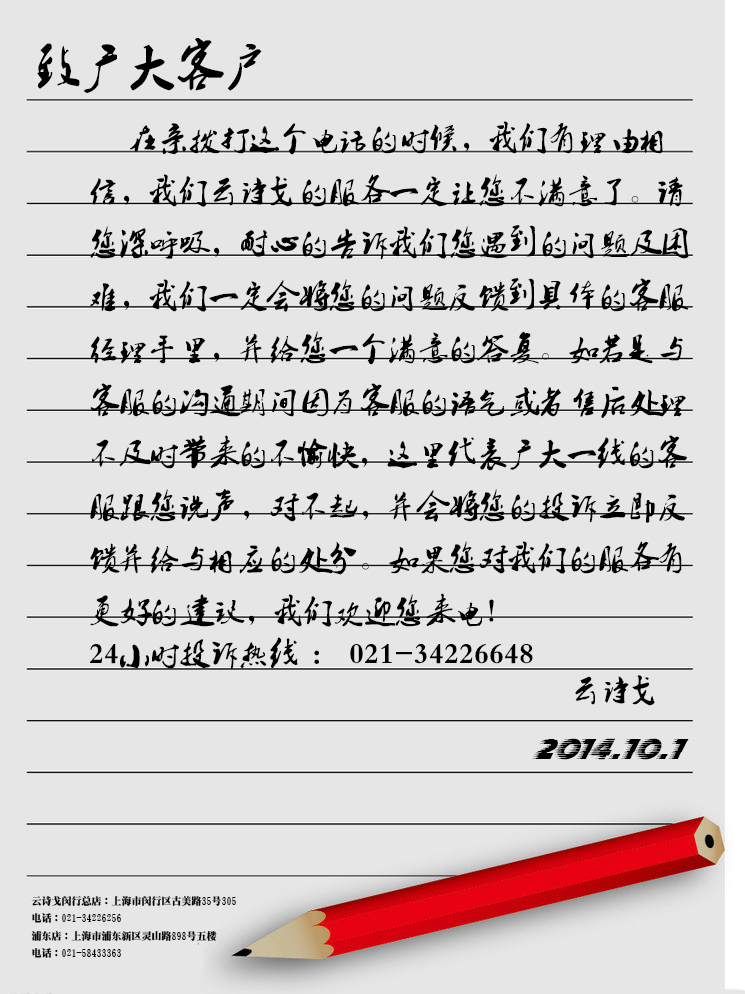 致广大客户
在亲拨打这个电话的时候，我们有理由相
信，我们云诗戈的服务一定让您不满意了。请
您深呼吸，耐心的告诉我们您遇到的问题及困
难，我们一定会将您的问题反馈到具体的客服
经理手里，并给您一个满意的答复。如若是与
客服的沟通期间因为客服的语气或者售后处理
不及时带来的不愉快，这里代表广大一线的客
服跟您说声，对不起，并会将您的投诉立即反
馈并给与相应的处分。如果您对我们的服务有
更好的建议，我们欢迎您来电！
24小时投诉热线： 021-34226648
云诗戈
2014.10.1
云诗戈闵行总店：上海市闵行区古美路35号305
电话：021-34226256
浦东店：上海市浦东新区灵山路898号五楼
电话：021-58433363